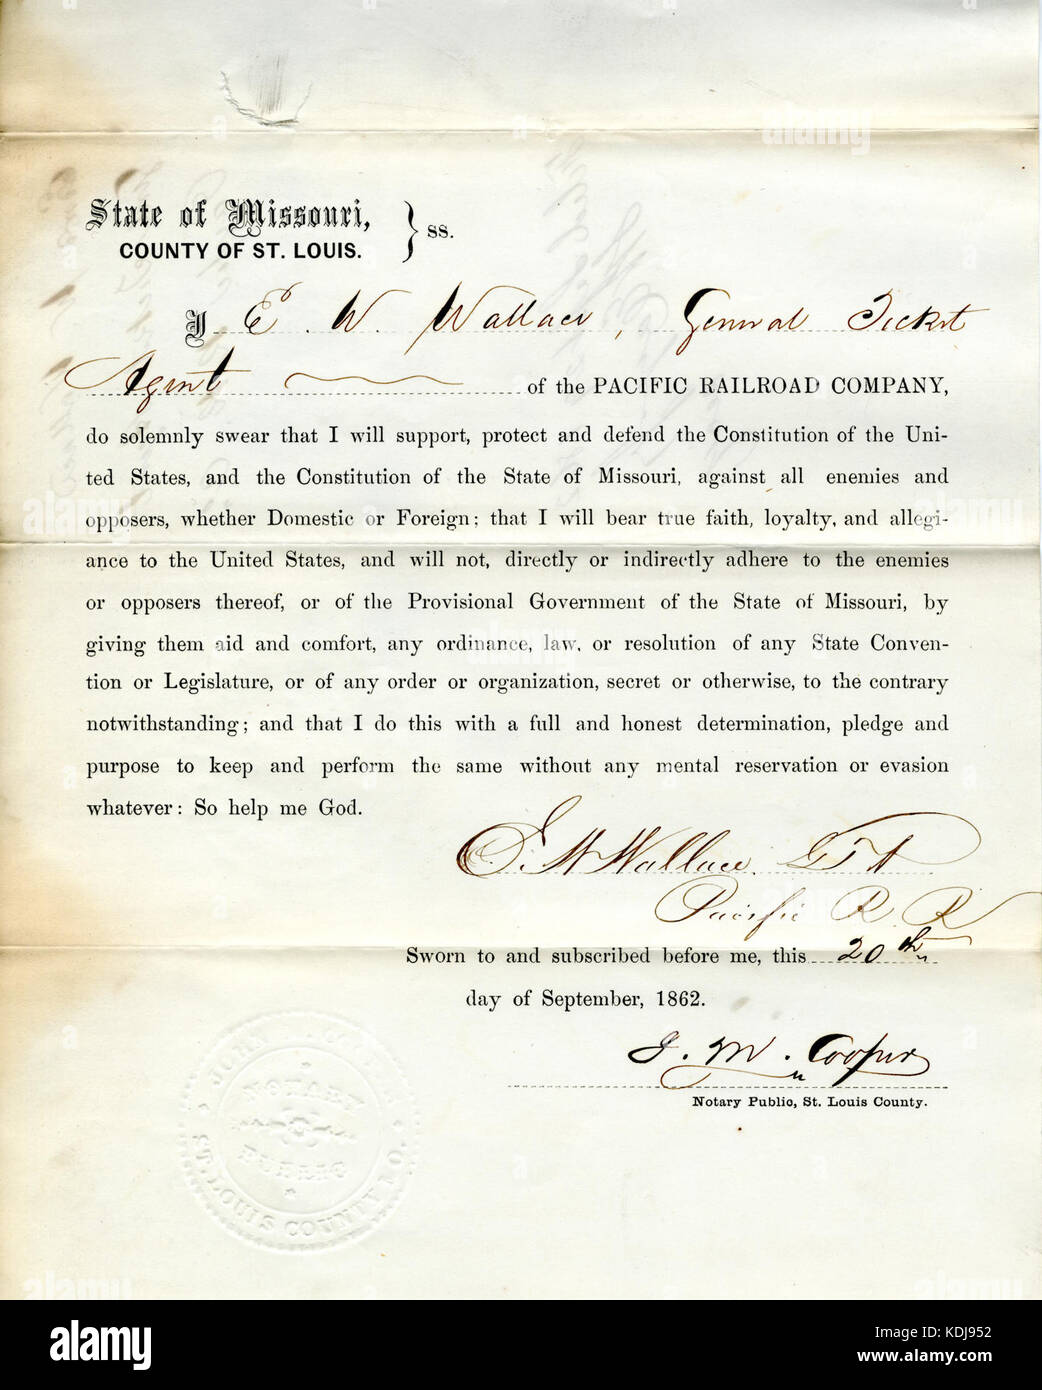 State of Missouri,
COUNTY OF ST. LOUIS. } ss.
I E. W. Wallace, General Ticket
Agent of the PACIFIC RAILROAD COMPANY,
do solemnly swear that I will support, protect and defend the Constitution of the Uni-
ted States, and the Constitution of the State of Missouri, against all enemies and
opposers, whether Domestic or Foreign; that I will bear true faith, loyalty, and allegi-
ance to the United States, and will not, directly or indirectly adhere to the enemies
or opposers thereof, or of the Provisional Government of the State of Missouri, by
giving them aid and comfort, any ordinance, law, or resolution of any State Conven-
tion or Legislature, or of any order or organization, secret or otherwise, to the contrary
notwithstanding; and that I do this with a full and honest determination, pledge and
purpose to keep and perform the same without any mental reservation or evasion
whatever: So help me God.
E. W Wallace. G T A
Pacific R. R
Sworn to and subscribed before me, this 20th
day of September, 1862.
J. M. Cooper
Notary Public, St. Louis County.
NOTARY
PUBLIC
ST. LOUIS COUNTY MO.
alamy
Image ID: KDJ952
www.alamy.com